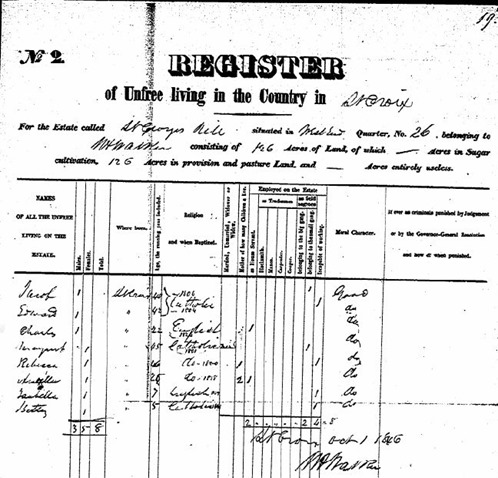 19
No 2.
REGISTER
of Unfree living in the Country in St Croix
For the Estate called St Georges Hill situated in West End Quarter, No. 26, belonging to
consisting of 126 Acres of Land, of which — Acres in Sugar
cultivation, 126 Acres in provision and pasture Land, and — Acres entirely useless.
NAMES OF ALL THE UNFREE LIVING ON THE ESTATE.
Males.
Females.
Total.
Where born.
Age, the running year included.
Religion and when Baptized.
Married, Unmarried, Widower or Widow.
Mother of how many Children a live.
Employed on the Estate
as House Servant.
as Tradesmen
Blacksmith.
Mason.
Carpenter.
Cooper.
as field negroes
belonging to the big gang.
belonging to the small gang.
Incapable of working.
Moral Character.
If ever as criminals punished by Judgement or by the Governor-General Resolution and how & when punished.
Jacob 1 St Croix 40 Catholic 1 Good
Edward 1 " 42 1804 do
Charles 1 " 22 English 1 do
1 " 45 Catholic do
Rebecca 1 " do 1 1 do
1 " 26 do 2 1 do
Isabella 1 " 7 English 1 do
Betsy 1 " 5 Catholic 1 do
3 5 8 2 2 4 = 8
St Croix Oct 1 1846